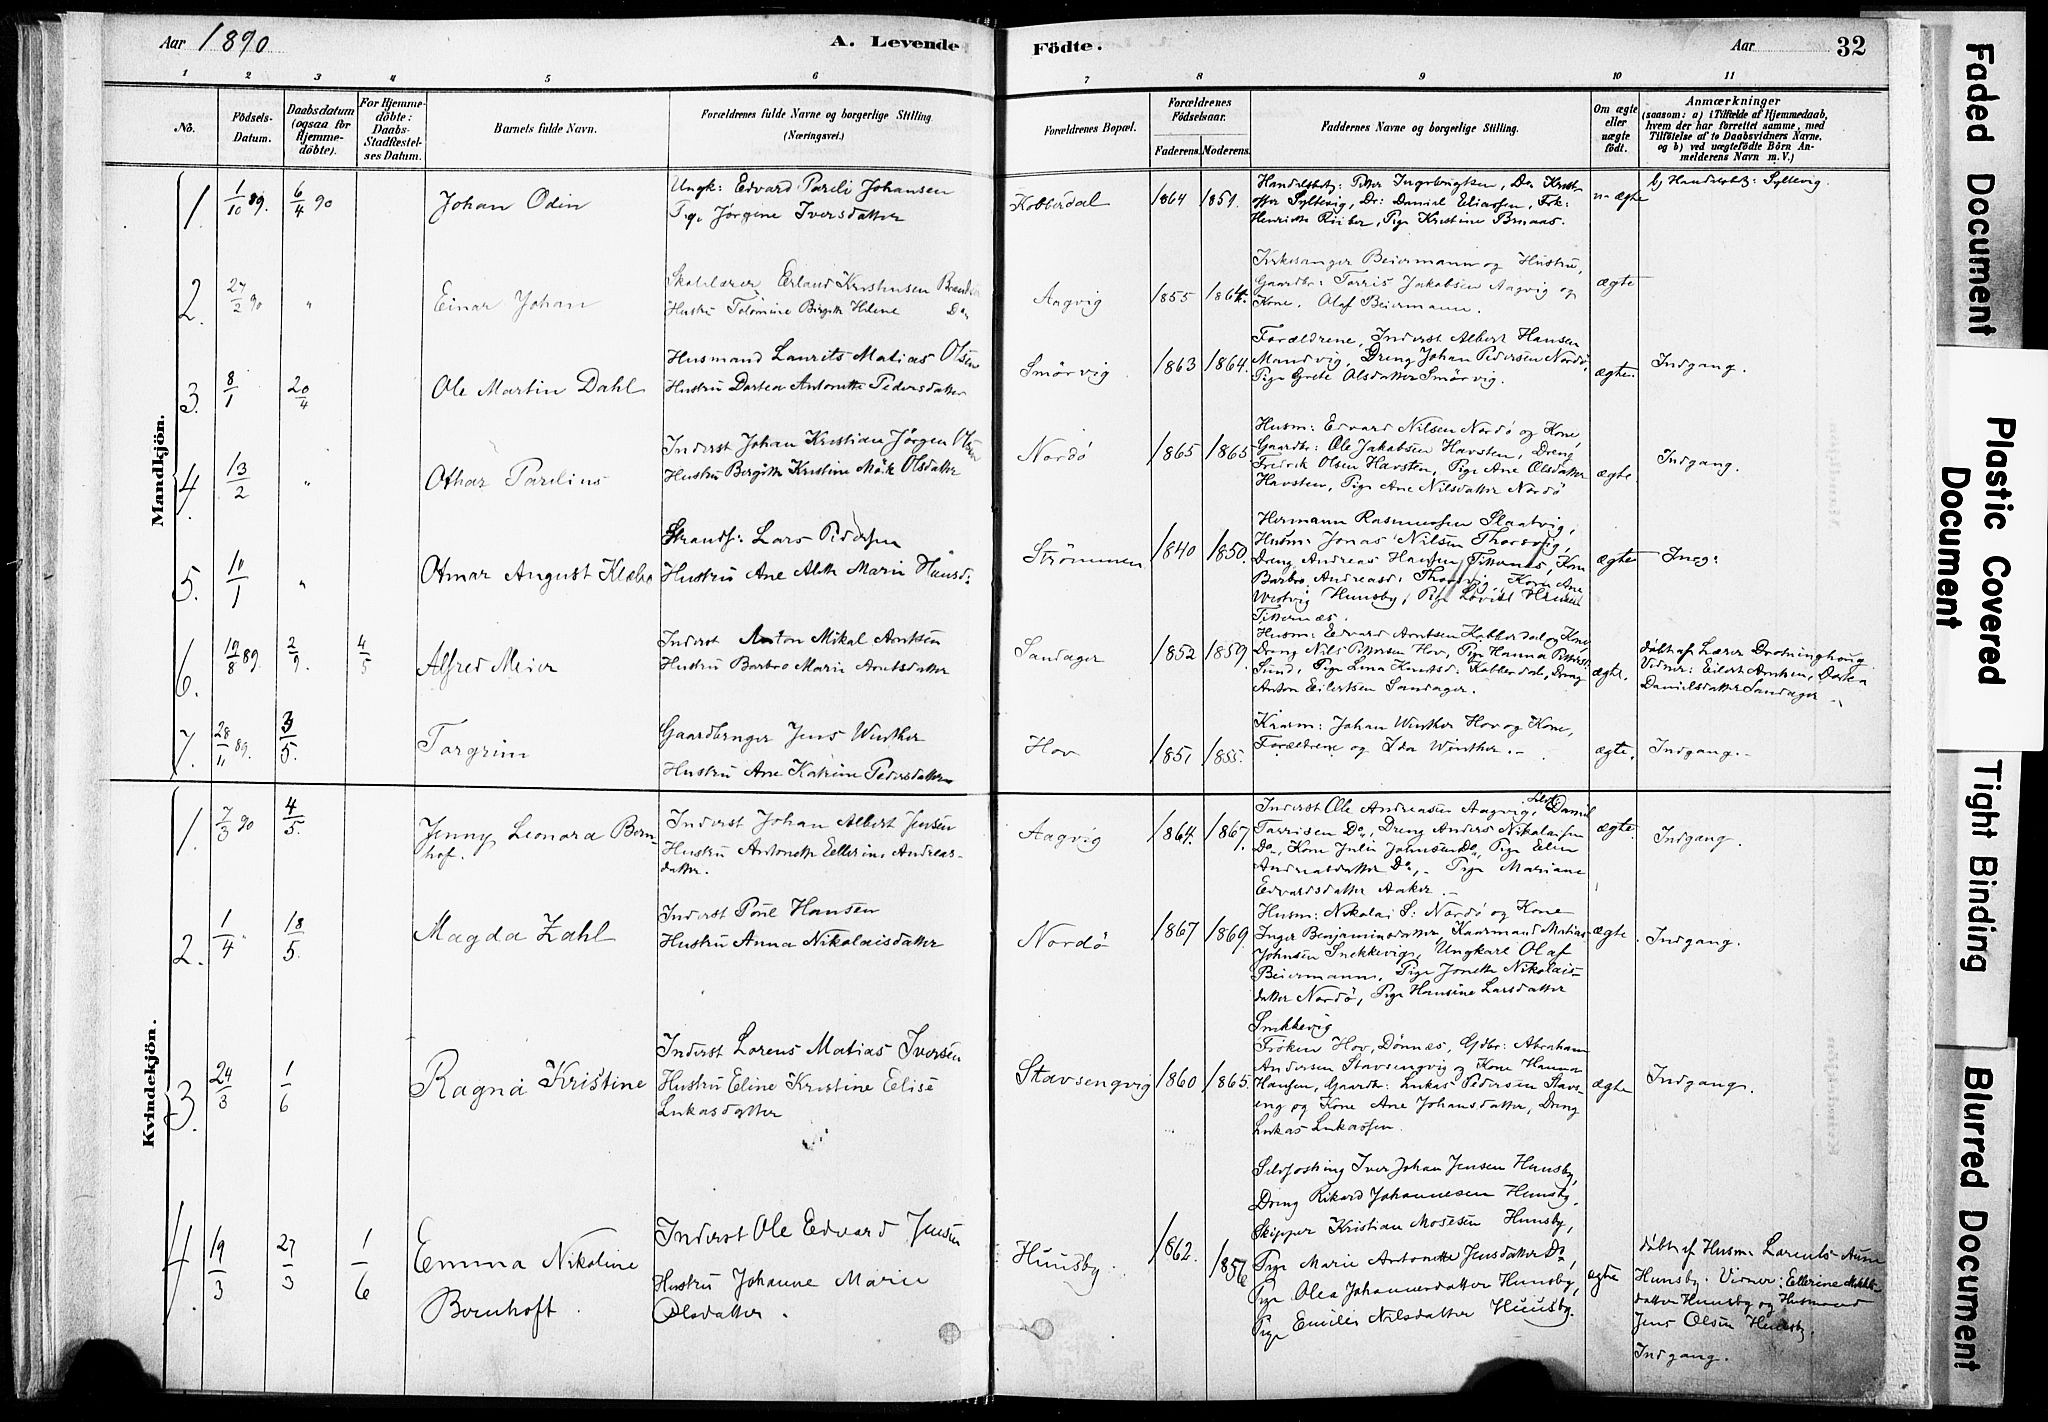 Aar 1890
A. Levende
Födte.
Aar
32
1 2 3 4 5 6
7 8 9 10 11
No.
Födsels-
Datum.
Daabsdatum
(ogsaa for
Hjemme-
döbte).
For Hjemme-
döbte:
Daabs-
Stadfæstel-
ses Datum.
Barnets fulde Navn.
Forældrenes fulde Navne og borgerlige Stilling
(Næringsvei.)
Forældrenes Bopæl.
Forældrenes
Födselsaar.
Faderens.
Moderens.
Faddernes Navne og borgerlige Stilling.
Om ægte
eller
uægte
födt.
Anmærkninger
(saasom: a) i Tilfælde af Hjemmedaab,
hvem der har forrettet samme, med
Tilföielse af to Daabsvidners Navne.
og b) ved uægtefödte Börn An-
melderens Navn m. V.)
Mandkjön.
1. 1/10 89. 6/4 90
Johan Odin
Ungk: Edvard Pareli Johansen
Pige Jørgine Iversdatter
Kobberdal
1864 1851.
Handelsbetj: Petter Ingebrigtsen, Do Krist-
offer Syltevig, Do: Daniel Eliassen, Frk:
Henriette Riiber, Pige Kristine Brnaas.
u-ægte
b) Handelsbetj: Syltevig.
2. 27/2 90 "
Einar Johan
Skolelærer Erland Kristensen
Hustru Tolomine Birgitte Helene Do
Aagvig
1855 1864.
Kirkesanger Beiermann og Hustru,
Gaardbr: Torris Jakobsen Aagvig og
Kone, Olaf Beiermann.
ægte
3. 8/1 20/4
Ole Martin Dahl
Husmand Laurits Matias Olsen
Hustru Dortea Antonette Pedersdatter
Smörvig
1863 1864.
Forældrene, Inderst Albert Hansen
Mandvig, Dreng Johan Pedersen Nordö,
Pige Grete Olsdatter Smörvig.
ægte.
Indgang.
4. 13/2 "
Othar Parelius
Inderst Johan Kristian Jørgen Olsen
Hustru Bergitte Kristine Olsdatter
Nordö
1865 1865
Husm: Edvard Nilsen Nordö og Kone,
Gaardbr: Ole Jakobsen Havsten, Dreng
Fredrik Olsen Havsten, Pige Ane Olsdatter
Havsten, Pige Ane Nilsdatter Nordö
ægte.
Indgang.
5. 10/1 "
Otmar August Klæbo
Strands: Lars Pedersen
Hustru Ane Aleth Marie Hansd:
Strömmen
1840 1850.
Hermann Rasmussen Slaatvig,
Husm: Jonas Nilsen Thorsvig,
Dreng Andreas Hansen Titternæs, Kone
Barbro Andreasd: Thorsvig, Kone Ane
Westvig Hunsby, Pige Lovise Hansen
Titternæs.
ægte
Indg:
6. 19/8 89. 2/9. 4/5
Alfred Meier
Inderst Anton Mikal Arntsen
Hustru Barbro Marie Arntsdatter
Sandager
1852 1859.
Husm: Edvard Arntsen Kobberdal og Kone,
Dreng Nils Pettersen Hov, Pige Hanna Petters:
Sund, Pige Lina Knutsd: Kobberdal, Dreng
Anton Eilertsen Sandager.
ægte.
döbt af Lærer Drotninghoug
Vidner: Eilert Arntsen, Dortea
Danielsdatter Sandager
7. 28/11 89. 3/5.
Torgrim
Gaardbruger Jens Winther
Hustru Ane Katrine Pedersdatter
Hov
1851 1855.
Kaarm: Johan Winther Hov og Kone,
Forældrene og Ida Winther.
ægte.
Indgang.
Kvindekjön.
1. 7/3 90 4/5.
Jenny Leonora Bern-
hof.
Inderst Johan Albert Jensen
Hustru Antonette Ellerine Andreas-
datter.
Aagvig
1864. 1867.
Inderst Ole Andreasen Aagvig, Daniel
Torrisen Do, Dreng Anders Nikolaisen
Do, Kone Julie Johnsen Do, Pige Elen
Andreasdatter Do, Pige Mariane
Edvardsdatter Aaker.
ægte
Indgang.
2. 1/4 18/5.
Magda Zahl
Inderst Poul Hansen
Hustru Anna Nikolaisdatter
Nordö
1867 1869.
Husm: Nikolai S: Nordö og Kone
Inger Benjaminsdatter, Kaarmand Matias
Johnsen Snekkevig, Ungkarl Olaf
Beiermann, Pige Jonette Nikolais-
datter Nordö, Pige Hansine Larsdatter
Snekkevig
ægte.
Indgang.
3. 24/3 1/6
Ragna Kristine
Inderst Lorens Matias Iversen
Hustru Eline Kristine Elise
Lukasdatter
Stavsengvig
1860 1865.
Fröken Hov, Dönnæs, Gdbr: Abraham
Andersen Stavsengvig og Kone Hanna
Hansen, Gaardbr: Lukas Pedersen Stavs-
eng og Kone Ane Johansdatter, Dreng
Lukas Lukassen.
ægte
Indgang.
4. 19/3 27/3 1/6
Emma Nikoline
Bernhoft.
Inderst Ole Edvard Jensen
Hustru Johanne Marie
Olsdatter.
Huusby.
1862. 1856
Selvfostring Iver Johan Jensen Hunsby,
Dreng Rikard Johannesen Hunsby.
Skipper Kristian Mosesen Hunsby,
Pige Marie Antonette Jensdatter Do,
Pige Olea Johannesdatter Hunsby,
Pige Emilie Nilsdatter Huusby.
ægte
döbt af Husm: Lorents Aune
Hunsby. Vidner: Ellerine
datter Hunsby og Husmand
Jens Olsen Huusby.
Indgang.
Faded Document
Plastic Covered
Document
Tight Binding
Blurred Document